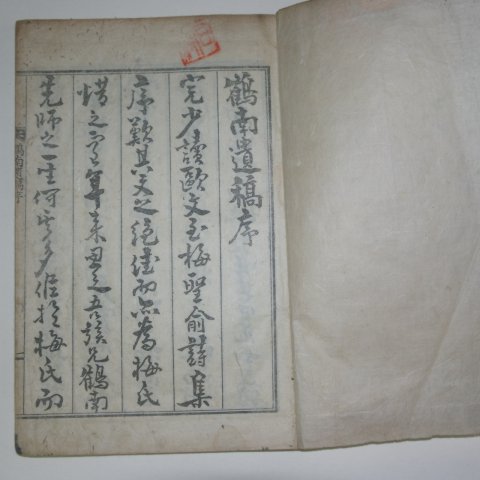 鶴南遺稿序
完少讀歐文至梅聖俞詩集
序歎其文之絶佳而亦爲梅氏
惜之百年來思之吾族兄鶴南
先師之一生何其多似於梅氏而
鶴南遺稿序